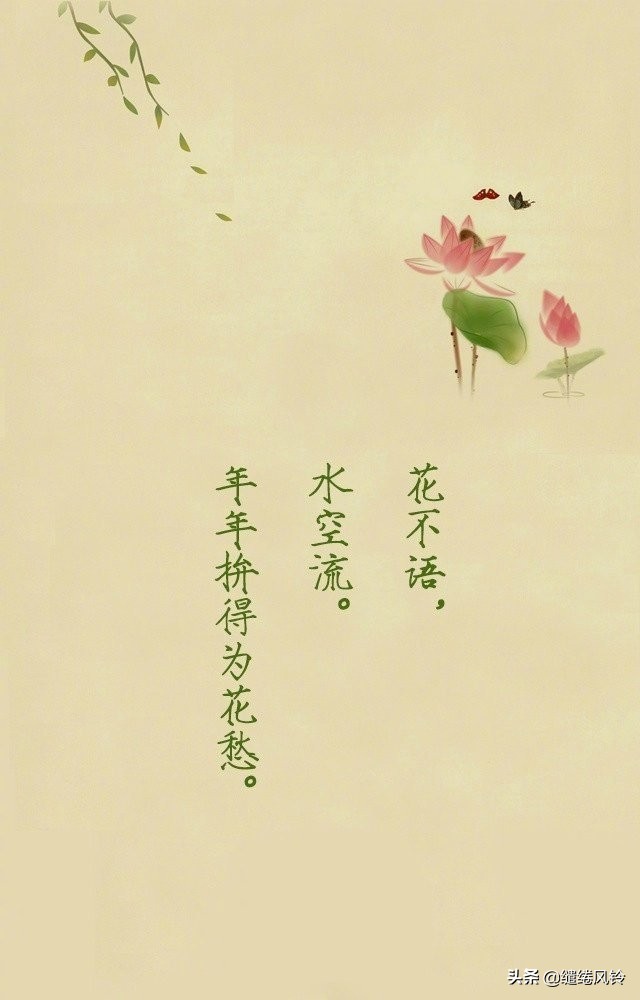 花不语，
水空流。
年年拚得为花愁。
头条 @缱绻风铃